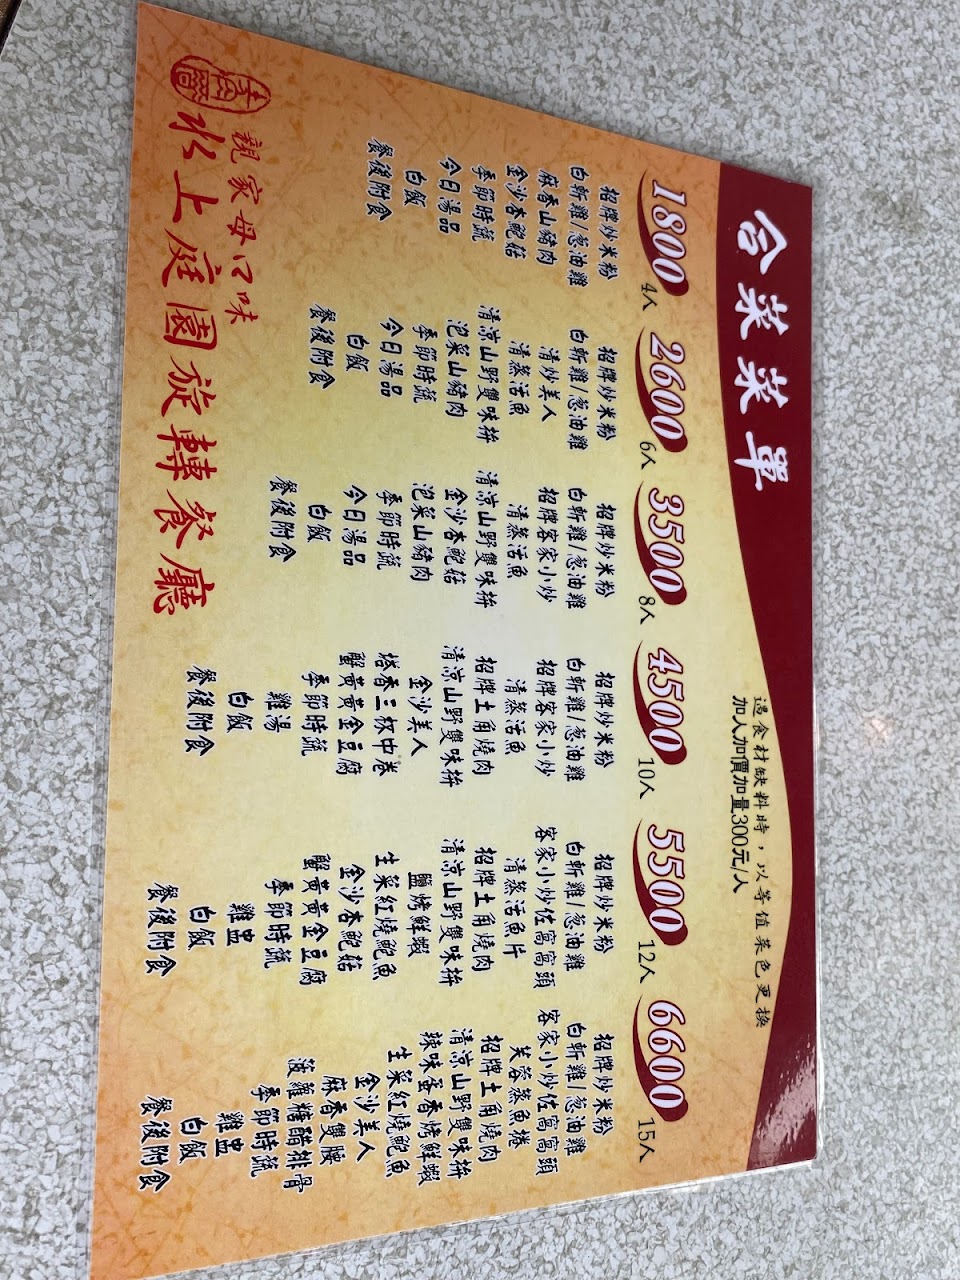 合菜菜單
遇食材缺料時，以等值菜色更換
加人加價加量300元/人
1800
4人
招牌炒米粉
白斬雞/蔥油雞
麻香山豬肉
金沙杏鮑菇
季節時蔬
今日湯品
白飯
餐後附食
2600
6人
招牌炒米粉
白斬雞/蔥油雞
清炒美人
清蒸活魚
清涼山野雙味拚
泡菜山豬肉
季節時蔬
今日湯品
白飯
餐後附食
3500
8人
招牌炒米粉
白斬雞/蔥油雞
招牌客家小炒
清蒸活魚
清涼山野雙味拚
金沙鮑菇
泡菜山豬肉
季節時蔬
今日湯品
白飯
餐後附食
4500
10人
招牌炒米粉
白斬雞/蔥油雞
招牌客家小炒
清蒸活魚
招牌土角燒肉
清涼山野雙味拚
金沙美人
塔香三杯中卷
蟹黃黃金豆腐
季節時蔬
雞湯
白飯
餐後附食
5500
12人
招牌炒米粉
白斬雞/蔥油雞
客家小炒佐窩窩頭
清蒸活魚片
招牌土角燒肉
清涼山野雙味拚
鹽烤鮮蝦
生菜紅燒鮑魚
金沙杏鮑菇
蟹黃黃金豆腐
季節時蔬
雞盅
白飯
餐後附食
6600
15人
招牌炒米粉
白斬雞/蔥油雞
客家小炒佐窩窩頭
芙蓉蒸魚捲
招牌土角燒肉
清涼山野雙味拚
辣味蛋香烤鮮蝦
生菜紅燒鮑魚
金沙美人
麻香雙腰
菠蘿糖醋排骨
季節時蔬
雞盅
白飯
餐後附食
親家母口味
水上庭園旋轉餐廳